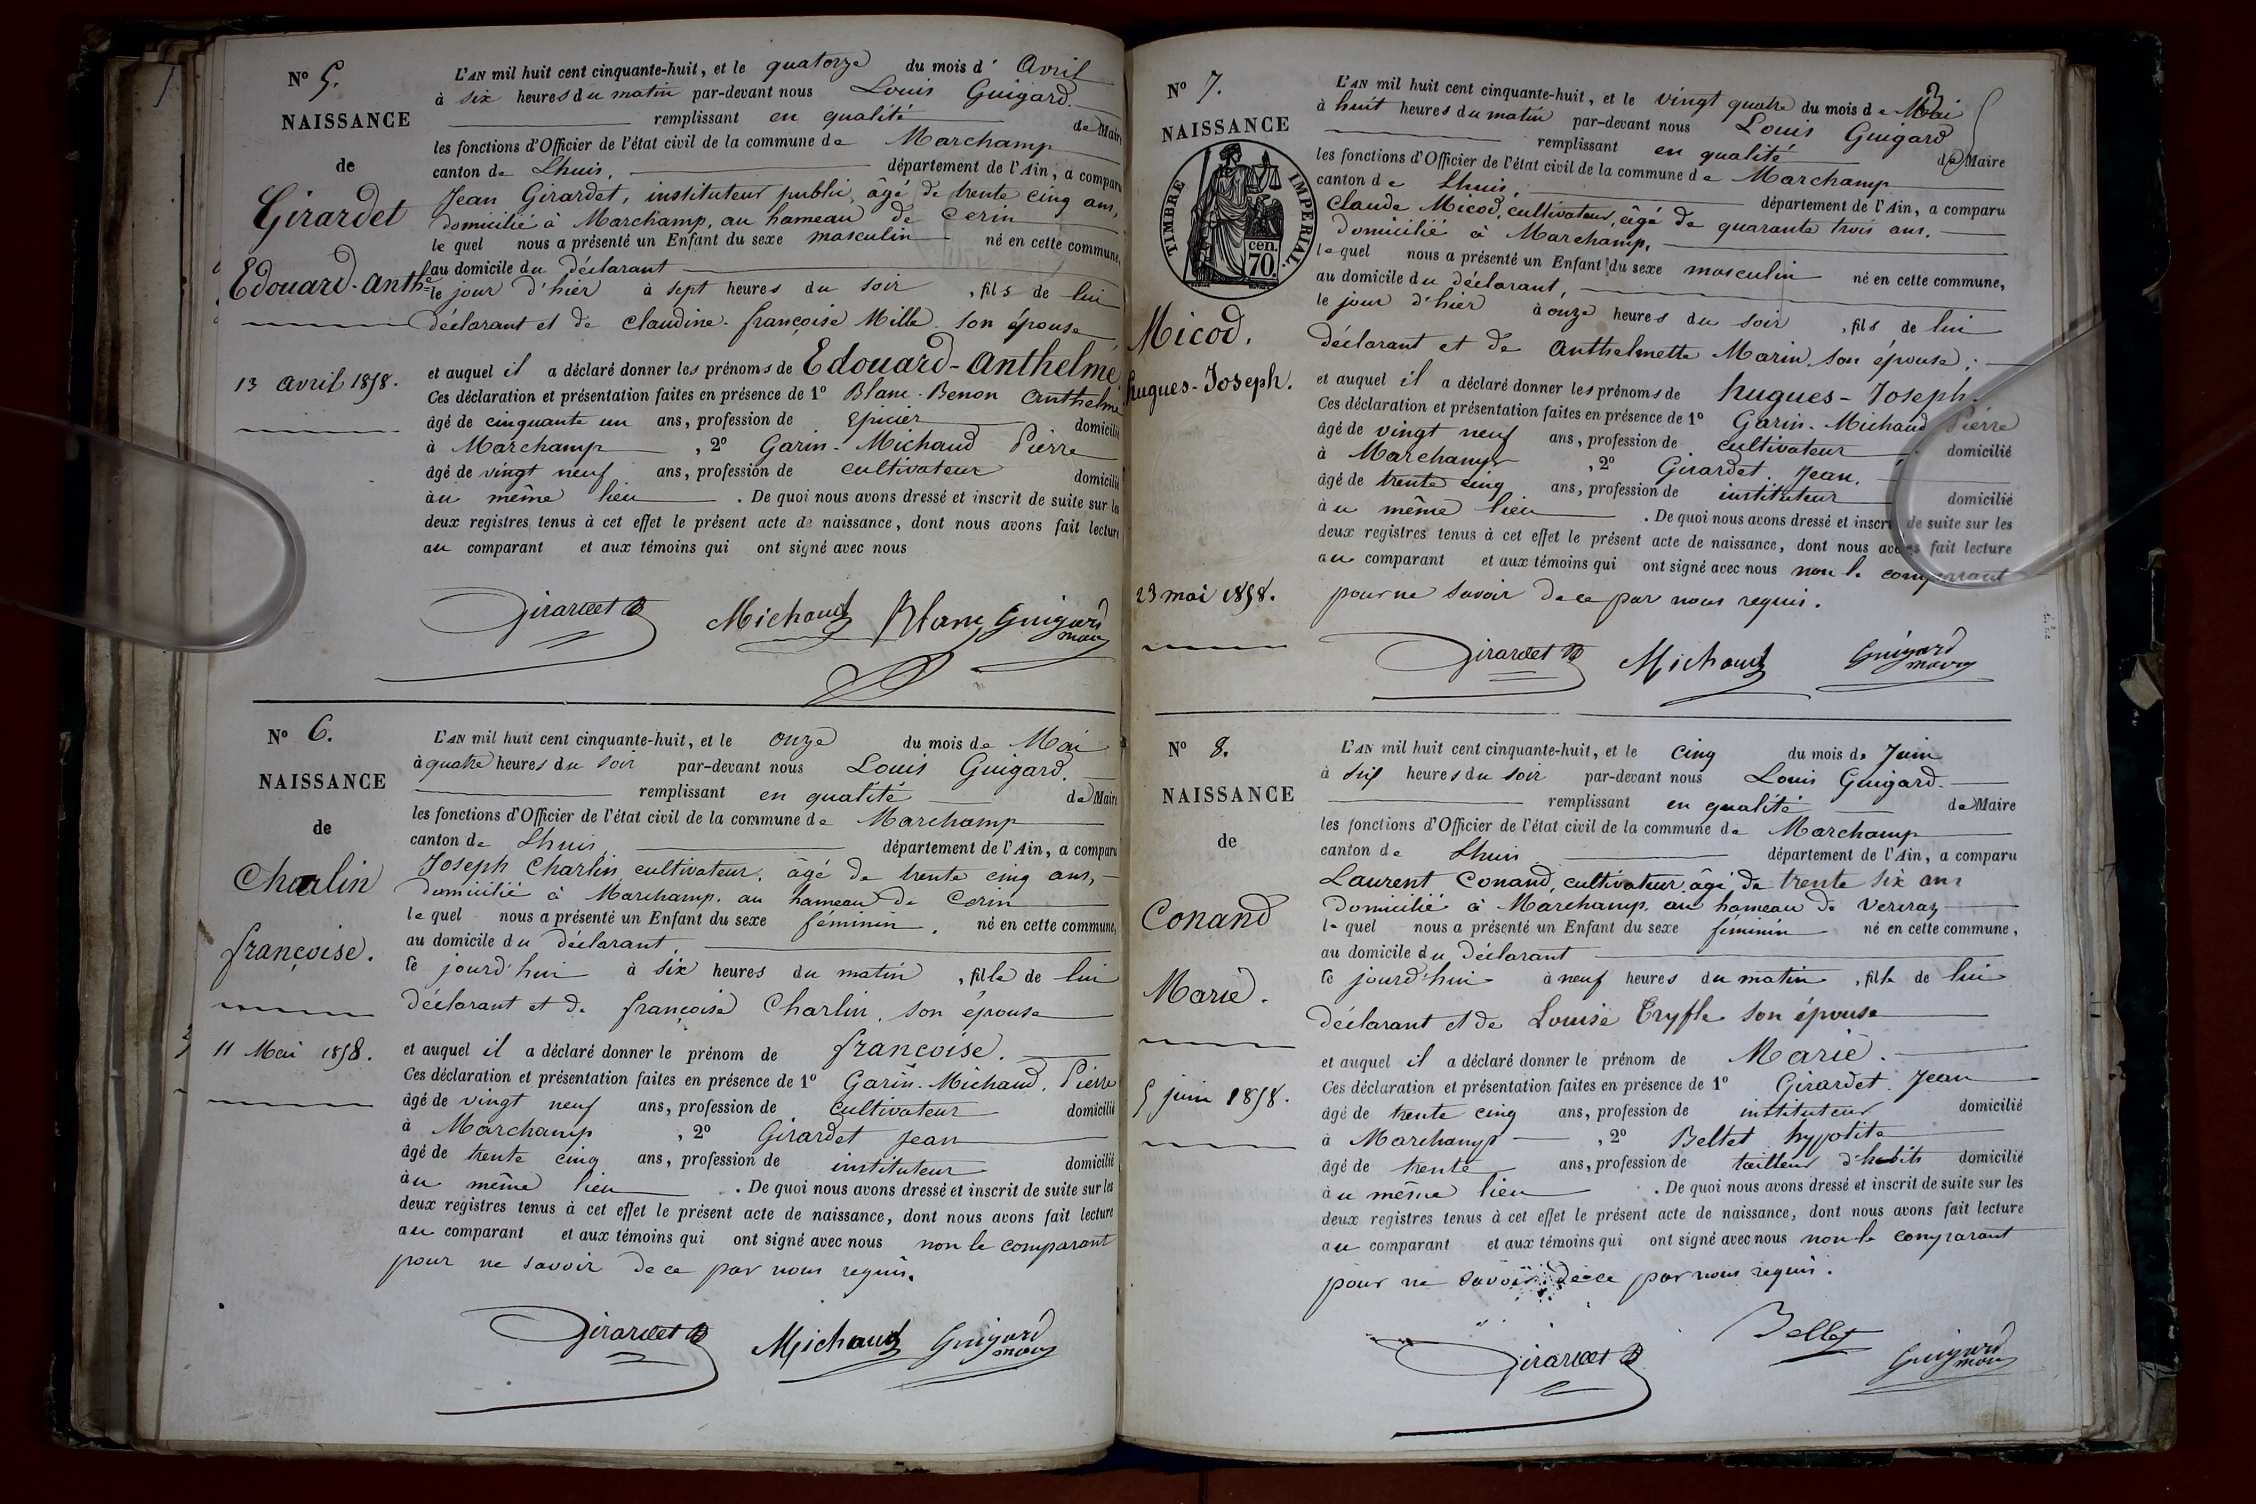 N° 5.
NAISSANCE
de
Girardet
Edouard-Anthe
13 avril 1858.
L'AN mil huit cent cinquante-huit, et le quatorze du mois d' Avril
à six heures du matin par-devant nous Louis Guigard.
remplissant en qualité de Maire
les fonctions d'Officier de l'état civil de la commune de Marchamp
canton de Lhuis, département de l'Ain, a comparu
Jean Girardet, instituteur public, âgé de trente cinq ans,
domicilié à Marchamp, au hameau de Cerin
lequel nous a présenté un Enfant du sexe masculin né en cette commune,
au domicile du déclarant
le jour d'hier à sept heures du soir, fils de lui
déclarant et de Claudine-françoise Mille son épouse
et auquel il a déclaré donner les prénoms de Edouard-Anthelme
Ces déclaration et présentation faites en présence de 1° Blanc-Benon Anthelme
âgé de cinquante un ans, profession de Epicier domicilié
à Marchamp, 2° Garin-Michaud Pierre
âgé de vingt neuf ans, profession de cultivateur domicilié
au même lieu. De quoi nous avons dressé et inscrit de suite sur les
deux registres tenus à cet effet le présent acte de naissance, dont nous avons fait lecture
au comparant et aux témoins qui ont signé avec nous
Girardet Michaud Blanc Guigard
maire
N° 6.
NAISSANCE
de
Charlin
françoise.
11 Mai 1858.
L'AN mil huit cent cinquante-huit, et le onze du mois de Mai
à quatre heures du soir par-devant nous Louis Guigard.
remplissant en qualité de Maire
les fonctions d'Officier de l'état civil de la commune de Marchamp
canton de Lhuis, département de l'Ain, a comparu
Joseph Charlin cultivateur, âgé de trente cinq ans,
domicilié à Marchamp, au hameau de Cerin
lequel nous a présenté un Enfant du sexe féminin, né en cette commune,
au domicile du déclarant,
ce jourd'hui à six heures du matin, fille de lui
déclarant et de françoise Charlin, son épouse
et auquel il a déclaré donner le prénom de françoise.
Ces déclaration et présentation faites en présence de 1° Garin-Michaud, Pierre
âgé de vingt neuf ans, profession de cultivateur domicilié
à Marchamp, 2° Girardet Jean
âgé de trente cinq ans, profession de instituteur domicilié
au même lieu. De quoi nous avons dressé et inscrit de suite sur les
deux registres tenus à cet effet le présent acte de naissance, dont nous avons fait lecture
au comparant et aux témoins qui ont signé avec nous non le comparant
pour ne savoir de ce par nous requis.
Girardet Michaud Guigard
maire
N° 7.
NAISSANCE
TIMBRE IMPERIAL.
cen.
70.
Micod.
hugues-Joseph.
23 mai 1858.
3
L'AN mil huit cent cinquante-huit, et le vingt quatre du mois de Mai
à huit heures du matin par-devant nous Louis Guigard
remplissant en qualité de Maire
les fonctions d'Officier de l'état civil de la commune de Marchamp
canton de Lhuis, département de l'Ain, a comparu
Claude Micod, cultivateur, âgé de quarante trois ans.
Domicilié à Marchamp,
lequel nous a présenté un Enfant du sexe masculin né en cette commune,
au domicile du déclarant,
le jour d'hier à onze heures du soir, fils de lui
déclarant et de Anthelmette Marin, son épouse;
et auquel il a déclaré donner les prénoms de hugues-Joseph.
Ces déclaration et présentation faites en présence de 1° Garin-Michaud Pierre
âgé de vingt neuf ans, profession de cultivateur domicilié
à Marchamp, 2° Girardet Jean,
âgé de trente cinq ans, profession de instituteur domicilié
au même lieu. De quoi nous avons dressé et inscrit de suite sur les
deux registres tenus à cet effet le présent acte de naissance, dont nous avons fait lecture
au comparant et aux témoins qui ont signé avec nous non le comparant
pour ne savoir de ce par nous requis.
Girardet Michaud Guigard
maire
N° 8.
NAISSANCE
de
Conand
Marie.
5 juin 1858.
L'AN mil huit cent cinquante-huit, et le cinq du mois de Juin
à six heures du soir par-devant nous Louis Guigard.
remplissant en qualité de Maire
les fonctions d'Officier de l'état civil de la commune de Marchamp
canton de Lhuis département de l'Ain, a comparu
Laurent Conand, cultivateur, âgé de trente six ans
Domicilié à Marchamp, au hameau de
lequel nous a présenté un Enfant du sexe féminin né en cette commune,
au domicile du déclarant
ce jourd'hui à neuf heures du matin, fille de lui
déclarant et de Louise son épouse
et auquel il a déclaré donner le prénom de Marie.
Ces déclaration et présentation faites en présence de 1° Girardet Jean
âgé de trente cinq ans, profession de instituteur domicilié
à Marchamp, 2° Bellet hypolite
âgé de trente ans, profession de tailleur d'habits domicilié
au même lieu. De quoi nous avons dressé et inscrit de suite sur les
deux registres tenus à cet effet le présent acte de naissance, dont nous avons fait lecture
au comparant et aux témoins qui ont signé avec nous non le comparant
pour ne savoir de ce par nous requis.
Girardet Bellet Guigard
maire